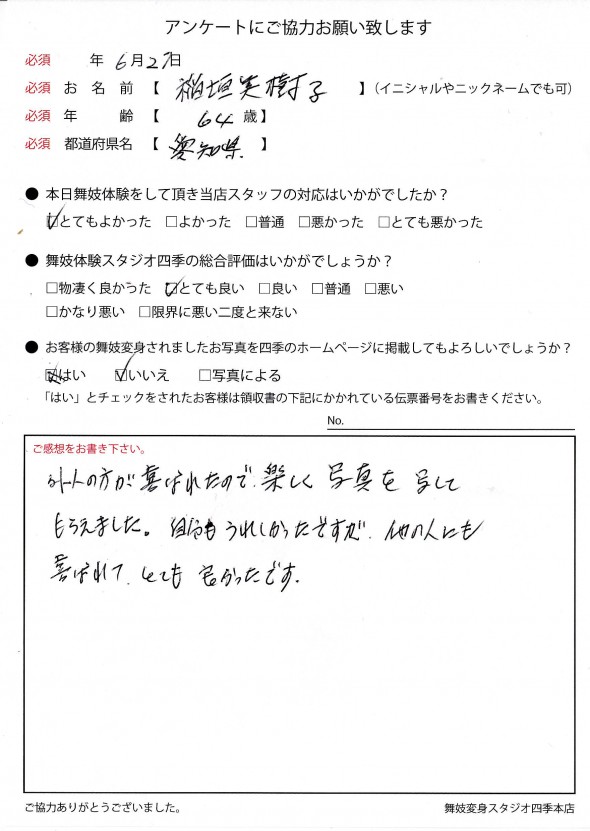 アンケートにご協力お願い致します
必須 年 6月27日
必須 お名前【 稲垣実樹子 】(イニシャルやニックネームでも可)
必須 年齢【 64歳】
必須 都道府県名【 愛知県 】
● 本日舞妓体験をして頂き当店スタッフの対応はいかがでしたか?
☑とてもよかった □よかった □普通 □悪かった □とても悪かった
● 舞妓体験スタジオ四季の総合評価はいかがでしょうか?
□物凄く良かった ☑とても良い □良い □普通 □悪い
□かなり悪い □限界に悪い二度と来ない
● お客様の舞妓変身されましたお写真を四季のホームページに掲載してもよろしいでしょうか?
☒はい ☑いいえ □写真による
「はい」とチェックをされたお客様は領収書の下記にかかれている伝票番号をお書きください。
No.
ご感想をお書き下さい。
外人の方が喜ばれたので、楽しく写真を写して
もらえました。自分もうれしかったですが、他の人にも
喜ばれて、とても良かったです。
ご協力ありがとうございました。
舞妓変身スタジオ四季本店